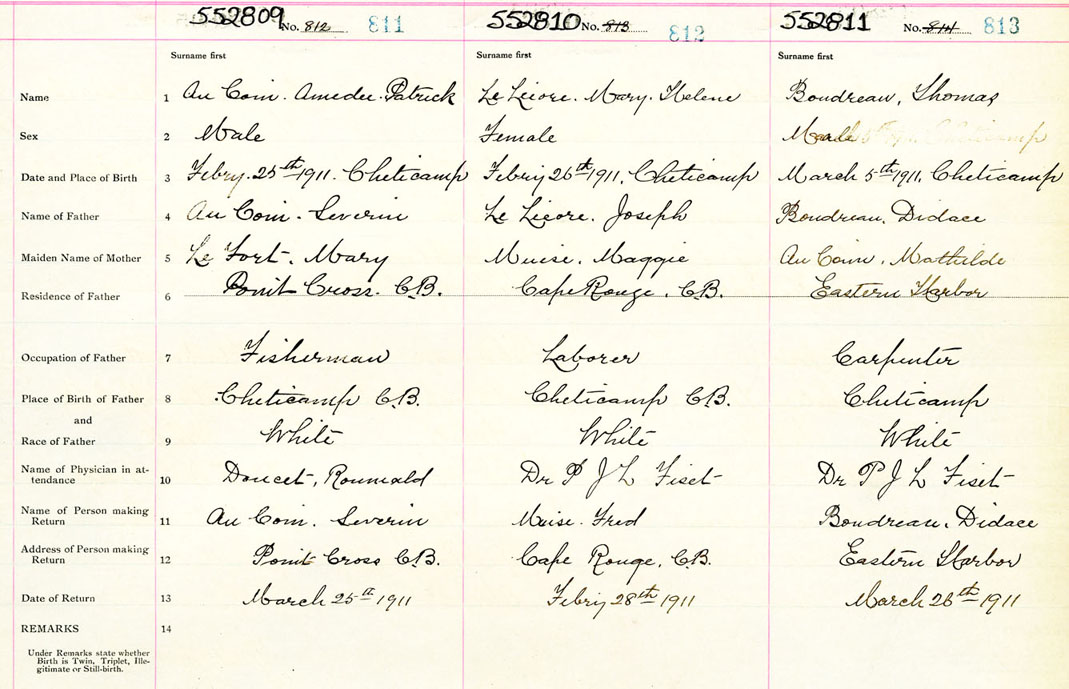 552809 No. 812 811 552810 No. 813 812 552811 No. 814 813
Surname first Surname first Surname first
Name 1 Au Coin. Amedee. Patrick Le Lievre. Mary. Helene Boudreau, Thomas
Sex 2 Male Female Male
Date and Place of Birth 3 Febry. 25th 1911. Cheticamp Febry 26th 1911. Cheticamp March 5th 1911. Cheticamp
Name of Father 4 Au Coin. Severin Le Lievre. Joseph Boudreau. Didace
Maiden Name of Mother 5 Le Fort. Mary Muise. Maggie Au Coin. Mathilde
Residence of Father 6 Point Cross. C.B. Cape Rouge, C.B. Eastern Harbor
Occupation of Father 7 Fisherman Laborer Carpenter
Place of Birth of Father 8 Cheticamp C.B. Cheticamp C.B. Cheticamp
and
Race of Father 9 White White White
Name of Physician in at-
tendance 10 Doucet, Roumald Dr P J L Fiset Dr P J L Fiset
Name of Person making
Return 11 Au Coin. Severin Muise. Fred Boudreau. Didace
Address of Person making
Return 12 Point Cross C.B. Cape Rouge, C.B. Eastern Harbor
Date of Return 13 March 25th 1911 Febry 28th 1911 March 26th 1911
REMARKS 14
Under Remarks state whether
Birth is Twin, Triplet, Ille-
gitimate or Still-birth.